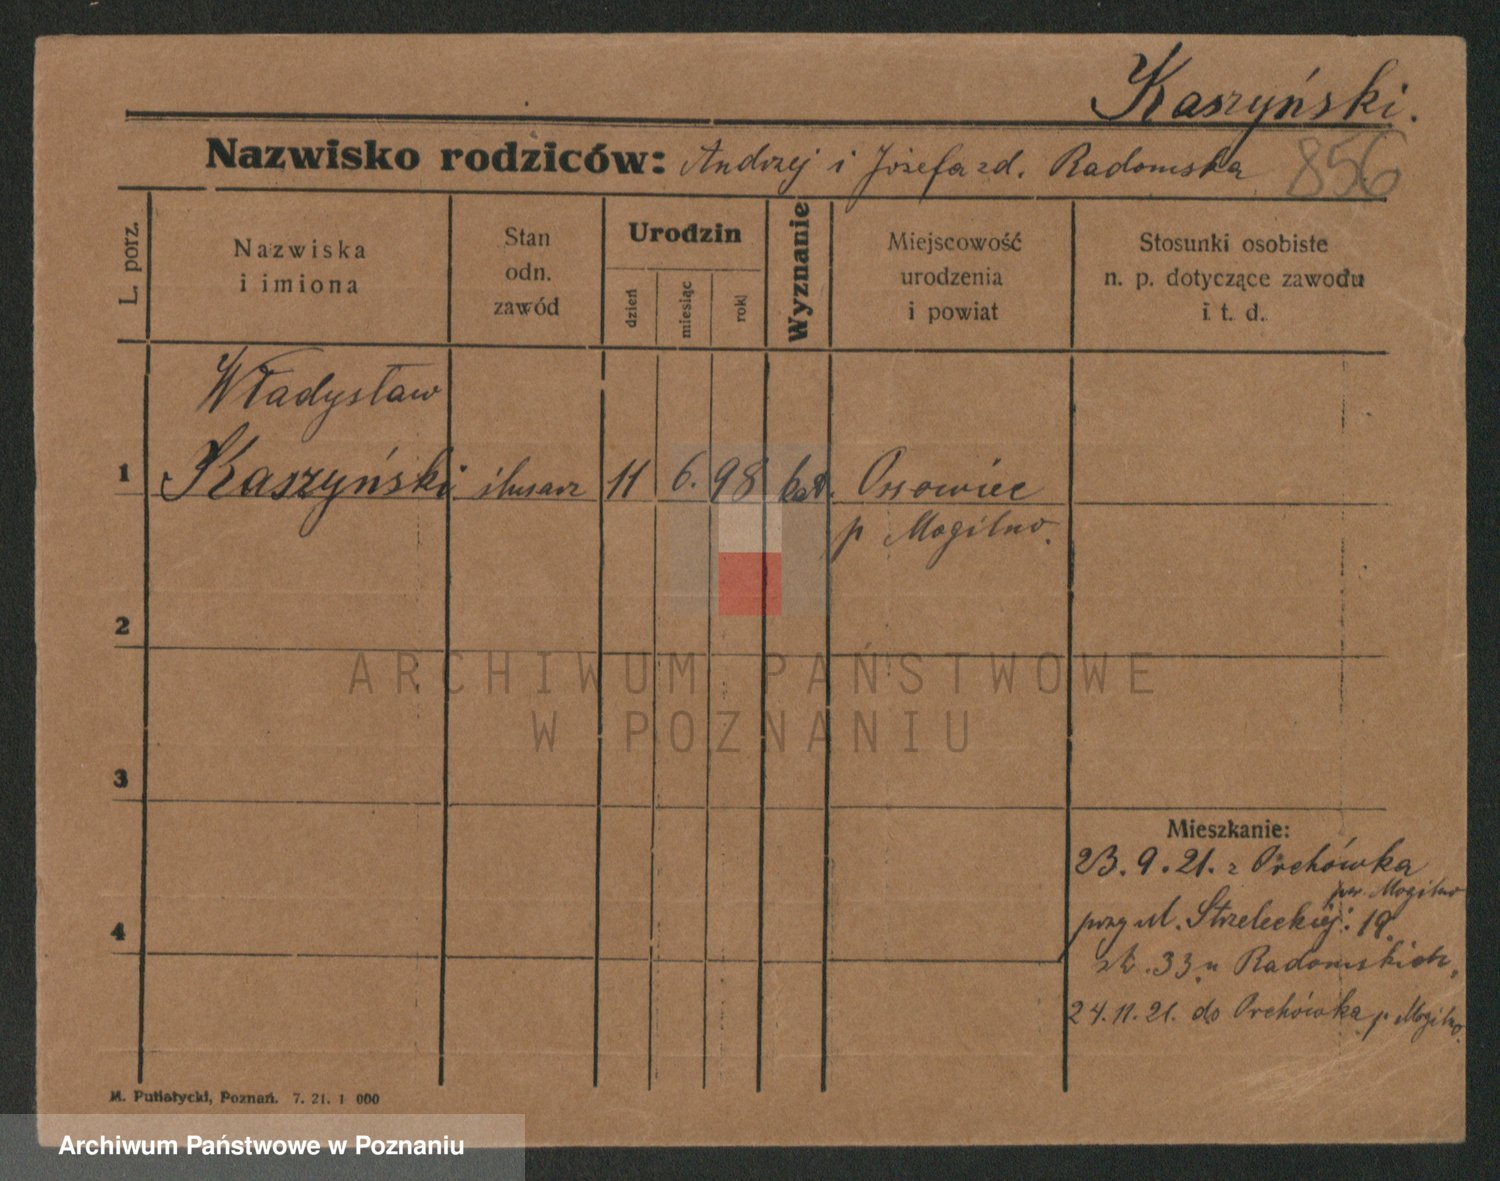 Kaszyński.
Nazwisko rodziców: Andrzej i Józefa zd. Radomska 856
L. porz.
Nazwiska i imiona
Stan odn. zawód
Urodzin
dzień
miesiąc
rok
Wyznanie
Miejscowość urodzenia i powiat
Stosunki osobiste n. p. dotyczące zawodu i t. d.
Władysław
1 Kaszyński ślusarz 11 6. 98 kat. Ossowiec
p Mogilno.
2
ARCHIWUM PAŃSTWOWE
W POZNANIU
3
Mieszkanie:
23.9.21. z Orchówka
pow. Mogilno
przy ul. Strzeleckiej: 19.
4
33 u Radomskich,
24.11.21. do Orchówka p Mogilno.
M. Putiatycki, Poznań. 7. 21. 1 000
Archiwum Państwowe w Poznaniu